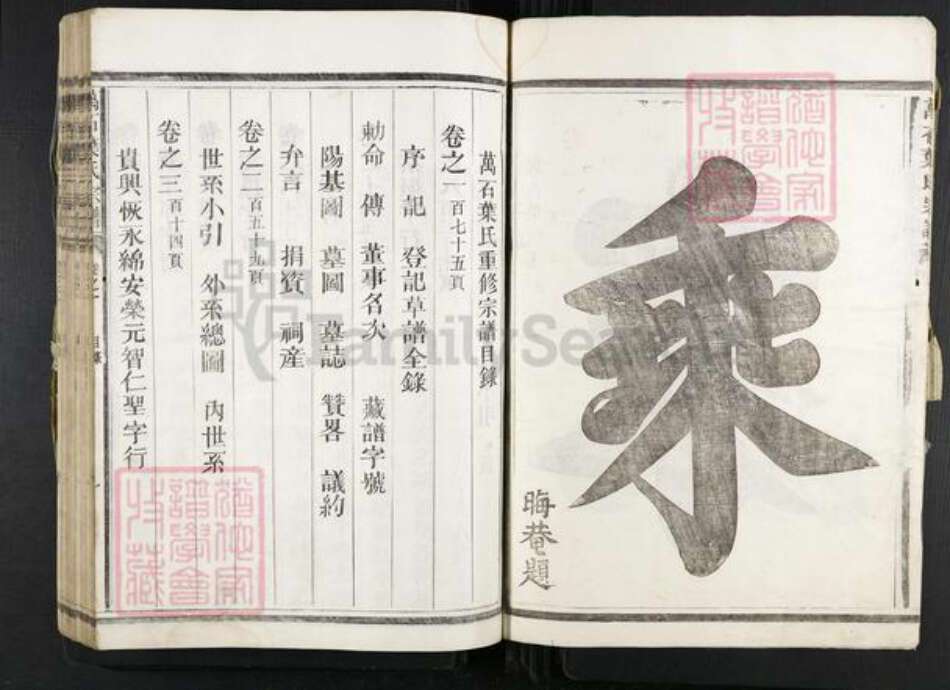 乘
晦菴題
萬石葉氏重修宗譜目錄
卷之一百七十五頁
序 記 登記草譜全錄
勅命 傳 董事名次 藏譜字號
陽基圖 墓圖 墓誌 贊畧 議約
弁言 捐資 祠産
卷之二百五十九頁
世系小引 外系總圖 內世系
卷之三百十四頁
貴興恢永綿安榮元智仁聖字行
目錄
FamilySearch